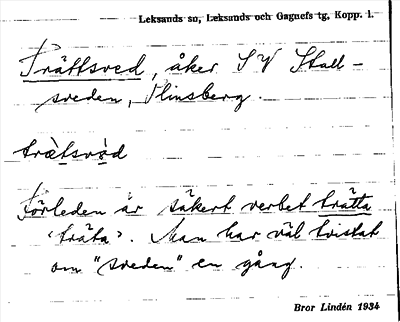 Leksands sn, Leksands och Gagnefs tg, Kopp. l.
Trättsved, åker SV Stall-
sveden, Plinsberg.
trä̀tsvèd
Förleden är säkert verbet trätta
‹träta›. Man har väl tvistat
om "sveden" en gång.
Bror Lindén 1934